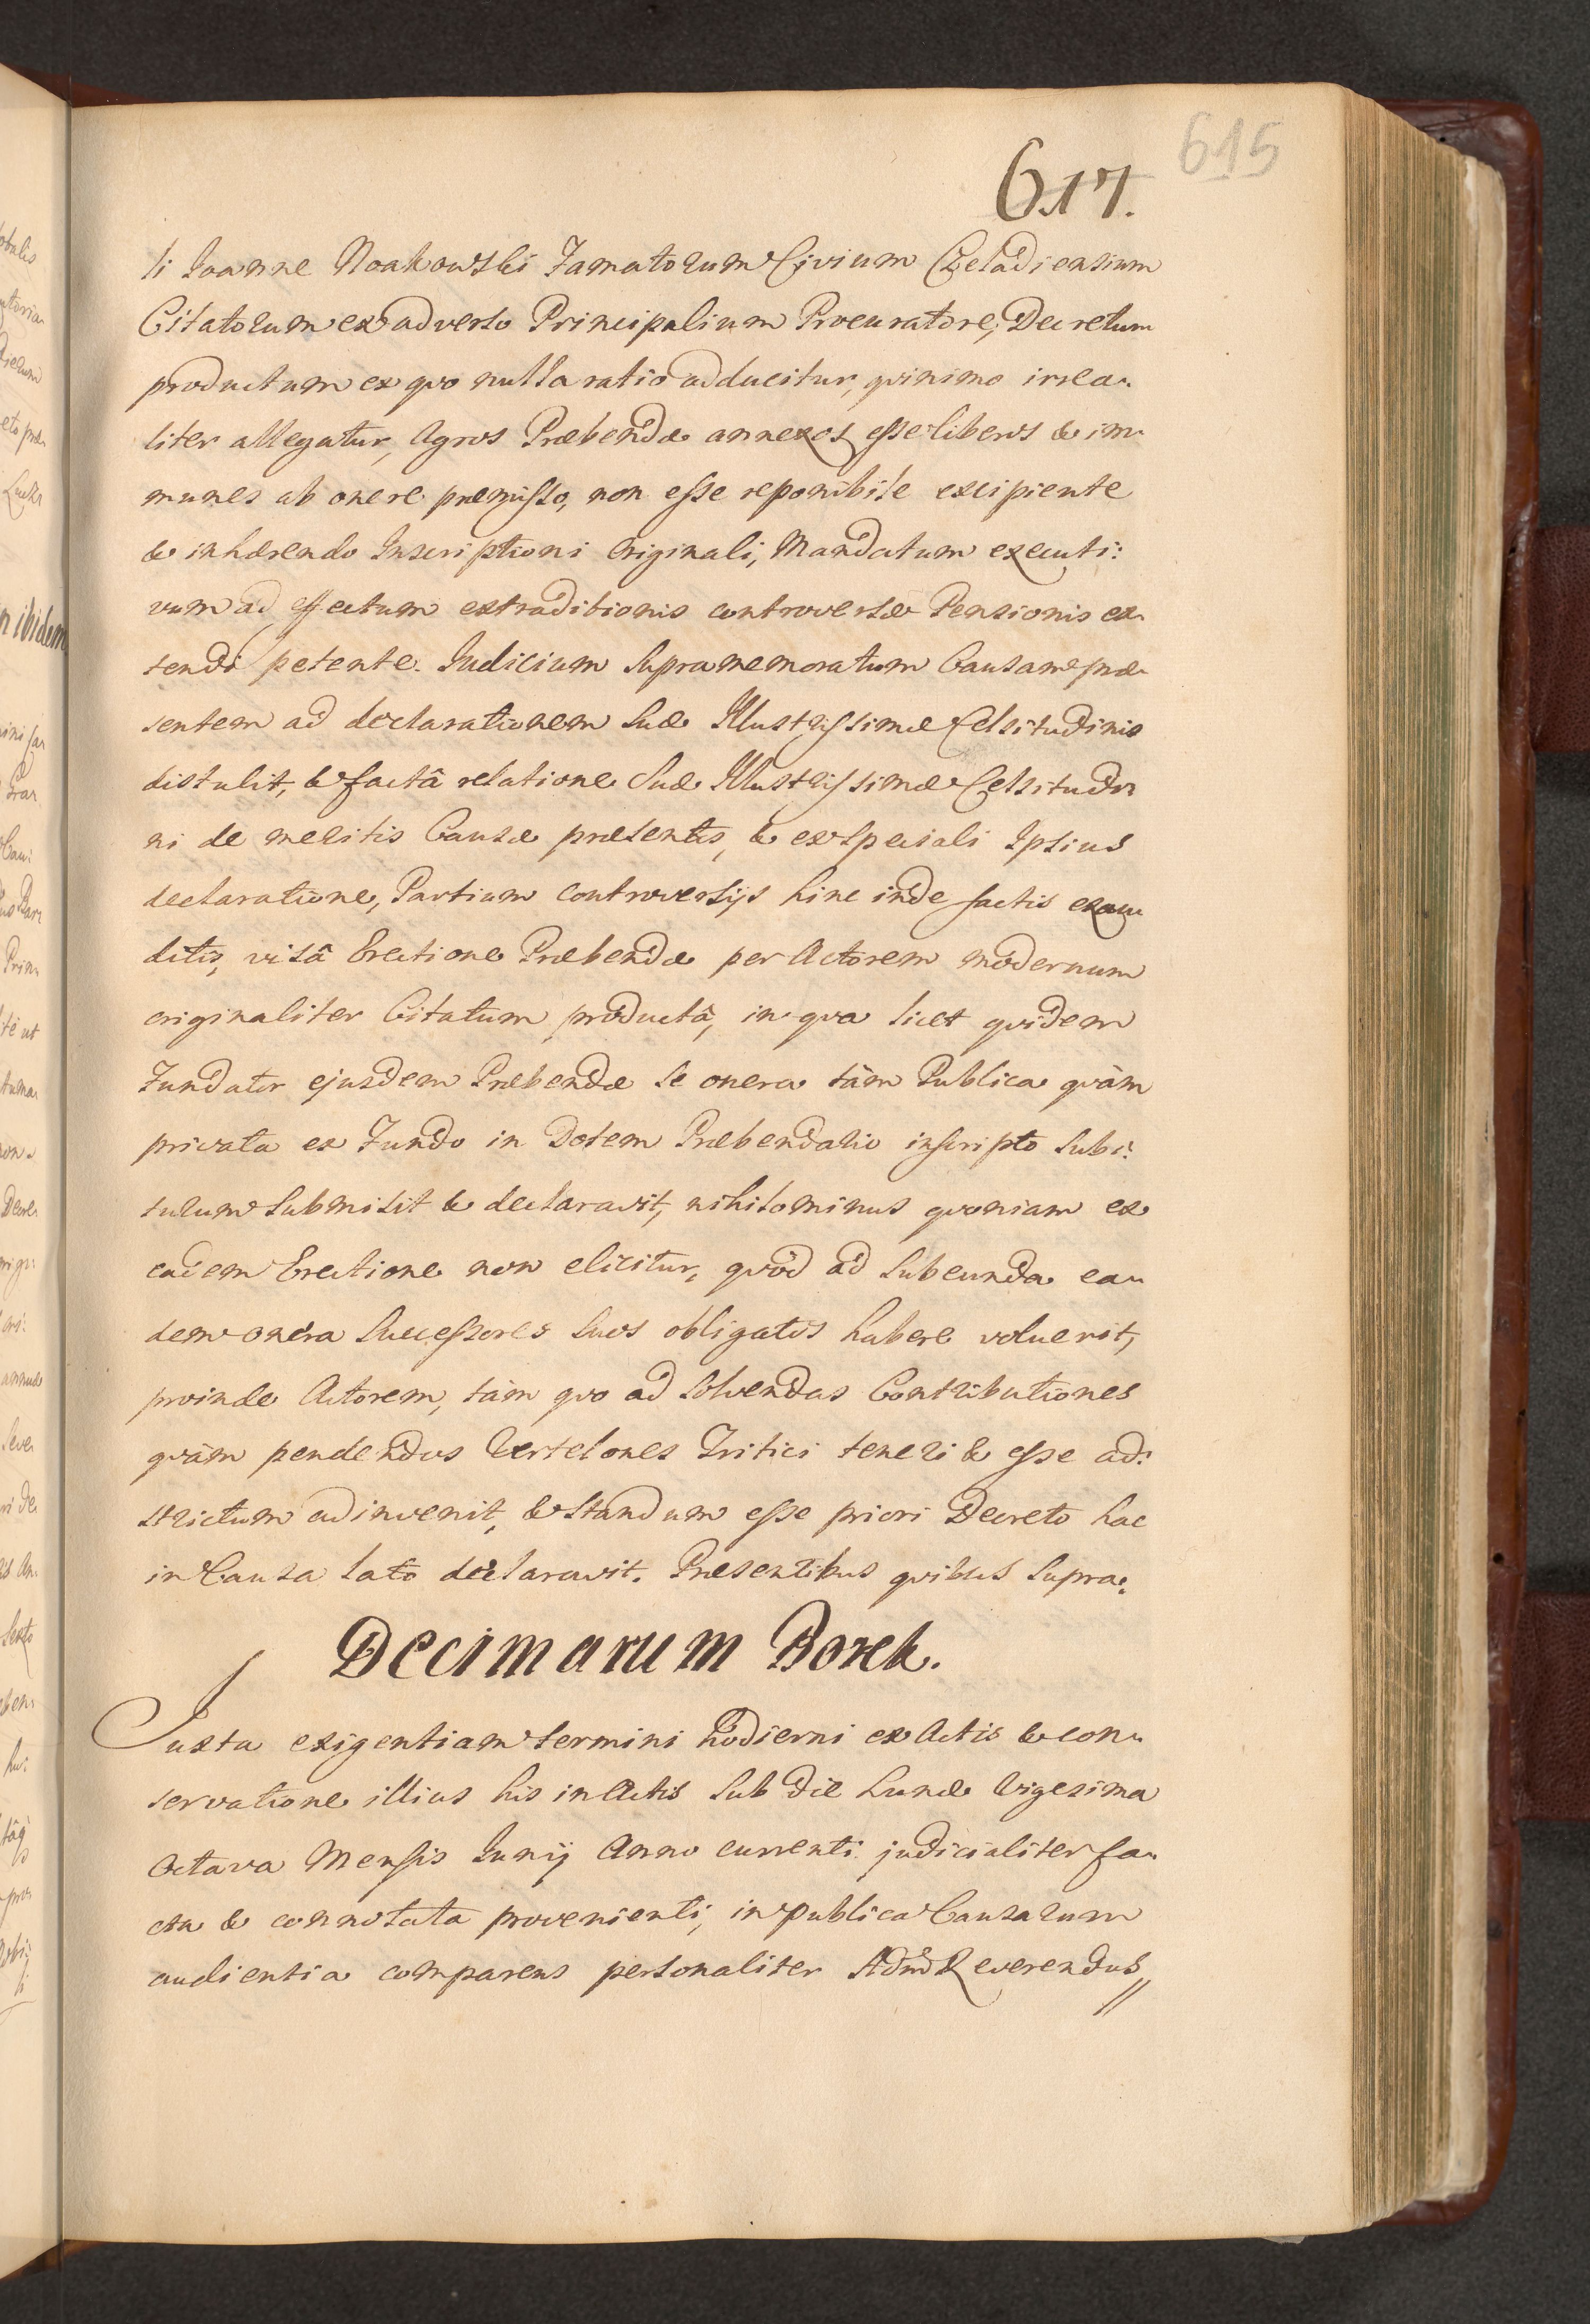 615
617.
li Joanne Noakowski Famatorum Civium Czeladiensium
Citatorum ex adverso Principalium Procuratore, Decretum
productum ex quo nulla ratio adducitur, quinimo irrea-
liter allegatur, Agros Præbendæ annexos esse liberos & im-
munes ab onere præmisso, non esse reponibile excipiente
& inhærendo Inscriptioni Originali, Mandatum executi:
vum ad effectum extraditionis controversæ Pensionis ex-
tendi petente. Judicium supramemoratum Causam præ-
sentem ad declarationem Suæ Illustrissimæ Celsitudinis
distulit, & factâ relatione Suæ Illustrissimæ Celsitudi-
ni de meritis Causæ præsentis, & ex speciali Ipsius
declaratione, Partium controversijs hinc inde factis exau-
ditis, visâ Erectione Præbendæ per Actorem modernum
originaliter Citatum productâ, in qva licet qvidem
Fundator ejusdem Præbendæ se onera tàm Publica qvàm
privata ex Fundo in Dotem Præbendario inscripto subi:
turum submisit & declaravit, nihilominus qvoniam ex
eadem Erectione non elicitur, qvòd ad subeunda ea-
dem onera Successores suos obligatos habere voluerit,
proinde Actorem, tàm qvo ad solvendas Contributiones
qvàm pendendos Vertelones Tritici teneri & esse ad:
strictum adinvenit, & standum esse priori Decreto hac
in Causa lato declaravit. Præsentibus qvibus supra.
Decimarum Borek.
Juxta exigentiam termini hodierni ex Actis & con-
servatione illius his in Actis sub die Lunæ Vigesima
Octava Mensis Junij Anno currenti judicialiter fa-
cta & connotata provenienti, in publica Causarum
audientia comparens personaliter Admd Reverendus